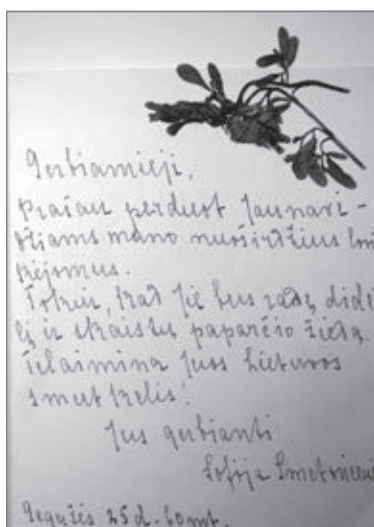 Gerbiamieji,
Prašau perduot jaunave-
džiams mano nuoširdžius lin
kėjomus.
Tikiu, kad jie bus radę didė
lį ir skaistų paparčio žiedą.
Telaimina Juos Lietuvos
smutkelis!
Jus gerbianti
Sofija Smetonienė
Gegužės 25 d. 60 mt.